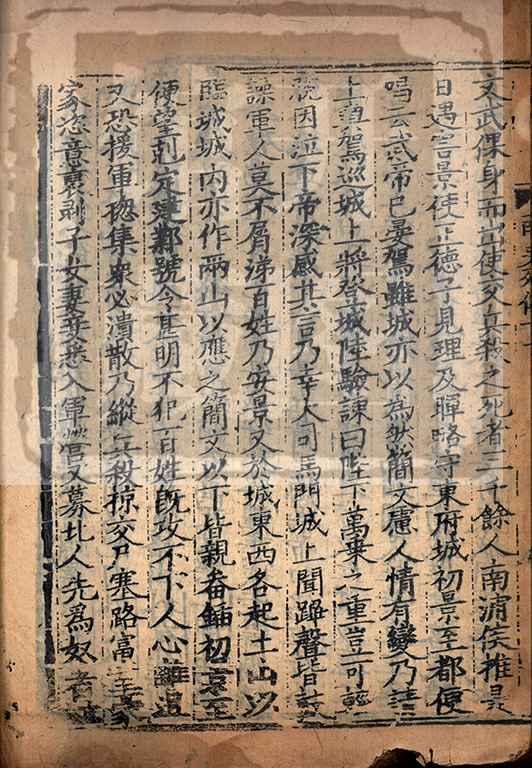 文武倮身而出使交兵殺之死者三千餘人南浦侯推是
日遇害景使正德子見理及暉略守東府城初景至都便
唱云武帝已晏駕雖城亦以為然簡文慮人情有變乃請
上輿駕巡城上將登城陸驗諫曰陛下萬乗之重豈可輕
脫因泣下帝深感其言乃幸大司馬門城上聞蹕聲皆鼓
譟軍人莫不屑涕百姓乃安景又於城東西各起土山以
臨城城內亦作兩山以應之簡文以下皆親畚鍤初景至
便望剋定建鄴號令甚明不犯百姓旣攻不下人心離沮
又恐援軍緫集衆必潰散乃縱兵殺掠交尸塞路富室豪
家恣意裒剥子女妻妾悉入軍營又募北人先爲奴者